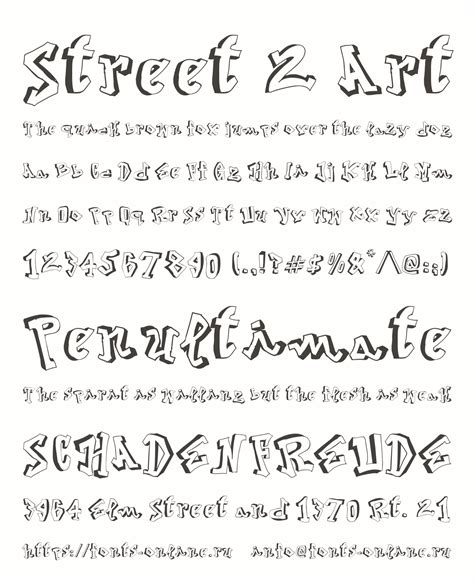 Street 2 Art
The quick brown fox jumps over the lazy dog
Aa Bb Cc Dd Ee Ff Gg Hh Ii Jj Kk Ll Mm
Nn Oo Pp Qq Rr Ss Tt Uu Vv Ww Xx Yy Zz
1234567890 (.,!?#$%&*/\@:;)
Penultimate
The spirit is willing but the flesh is weak
SCHADENFREUDE
3964 Elm Street and 1370 Rt. 21
https://fonts-online.ru info@fonts-online.ru